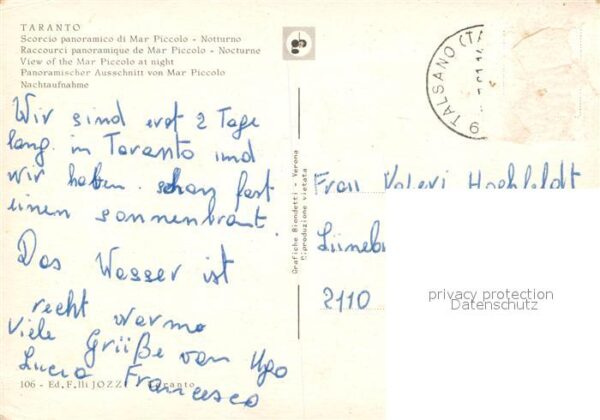 TARANTO
Scorcio panoramico di Mar Piccolo - Notturno
Raccourci panoramique de Mar Piccolo - Nocturne
View of the Mar Piccolo at night
Panoramischer Ausschnitt von Mar Piccolo
Nachtaufnahme
Wir sind erst 2 Tage
lang in Taranto und
wir haben schon fast
einen sonnenbrant.
Das Wasser ist
recht warme
Viele Grüße von Ugo
Lucia Francesco
106 - Ed. F.lli JOZZI Taranto
Grafiche Biondetti - Verona
Riproduzione vietata
TALSANO (TA
Frau Valeri Hochfeldt
Lüneb
2110
privacy protection
Datenschutz